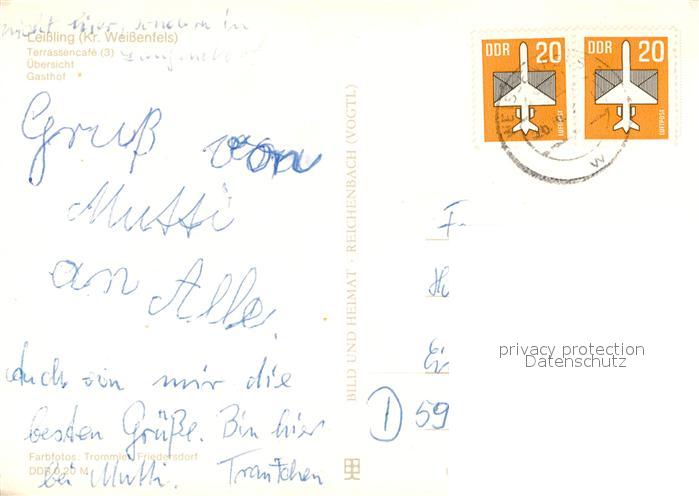 nicht hier, sondern in
Leißling (Kr. Weißenfels)
Terrassencafé (3)
Übersicht
Gasthof
Gruß von
Mutti
an Alle.
Auch von mir die
besten Grüße. Bin hier
bei Mutti. Trautchen
Farbfotos: Trommler, Friedersdorf
DDR 0,20 M
BILD UND HEIMAT · REICHENBACH (VOGTL)
DDR 20
LUFTPOST
DDR 20
LUFTPOST
D 59
privacy protection
Datenschutz